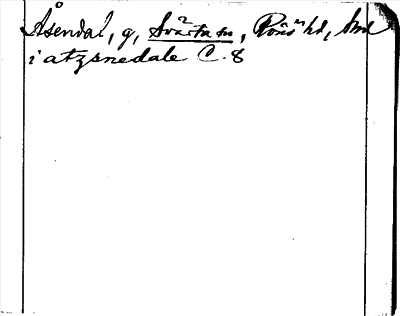 Åsendal, g, Svärta sn, Rönö hd, Srm
i atzsnedale C. 8